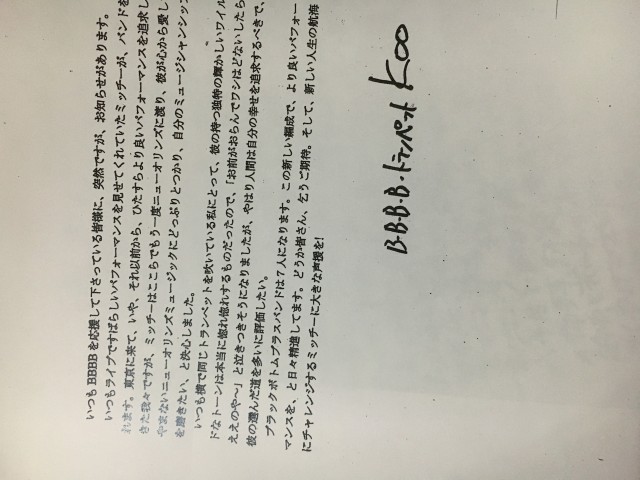 いつも BBBB を応援して下さっている皆様に、突然ですが、お知らせがあります。
いつもライブですばらしいパフォーマンスを見せてくれていたミッチーが、バンドを
れます。東京に来て、いや、それ以前から、ひたすらより良いパフォーマンスを追求し
きた我々ですが、ミッチーはここらでもう一度ニューオリンズに渡り、彼が心から愛し
やまないニューオリンズミュージックにどっぷりとつかり、自分のミュージシャンシップ
を磨きたい、と決心しました。
いつも横で同じトランペットを吹いている私にとって、彼の持つ独特の輝かしいワイル
ドなトーンは本当に惚れ惚れするものだったので、「お前がおらんでワシはどないしたら
ええのや〜」と泣きつきそうになりましたが、やはり人間は自分の幸せを追求するべきで、
彼の選んだ道を多いに評価したい。
ブラックボトムブラスバンドは7人になります。この新しい編成で、より良いパフォー
マンスを、と日々精進してます。どうか皆さん、乞うご期待。そして、新しい人生の航海
にチャレンジするミッチーに大きな声援を!
B・B・B・B・トランペット Koo